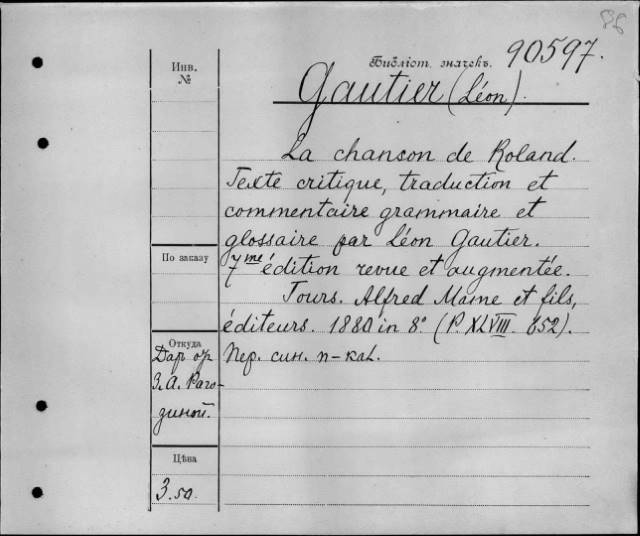 86
Инв.
№
Библіот. значекъ. 90597.
Gautier (Léon).
La chanson de Roland.
Texte critique, traduction et
commentaire grammaire et
glossaire par Léon Gautier.
7me édition revue et augmentée.
Tours. Alfred Mame et fils,
éditeurs. 1880 in 8º (P. XLVIII. 652).
Пер. син. п-каl.
По заказу
Откуда
Дар от
З.А. Раго-
зиной.
Цѣва
3.50.